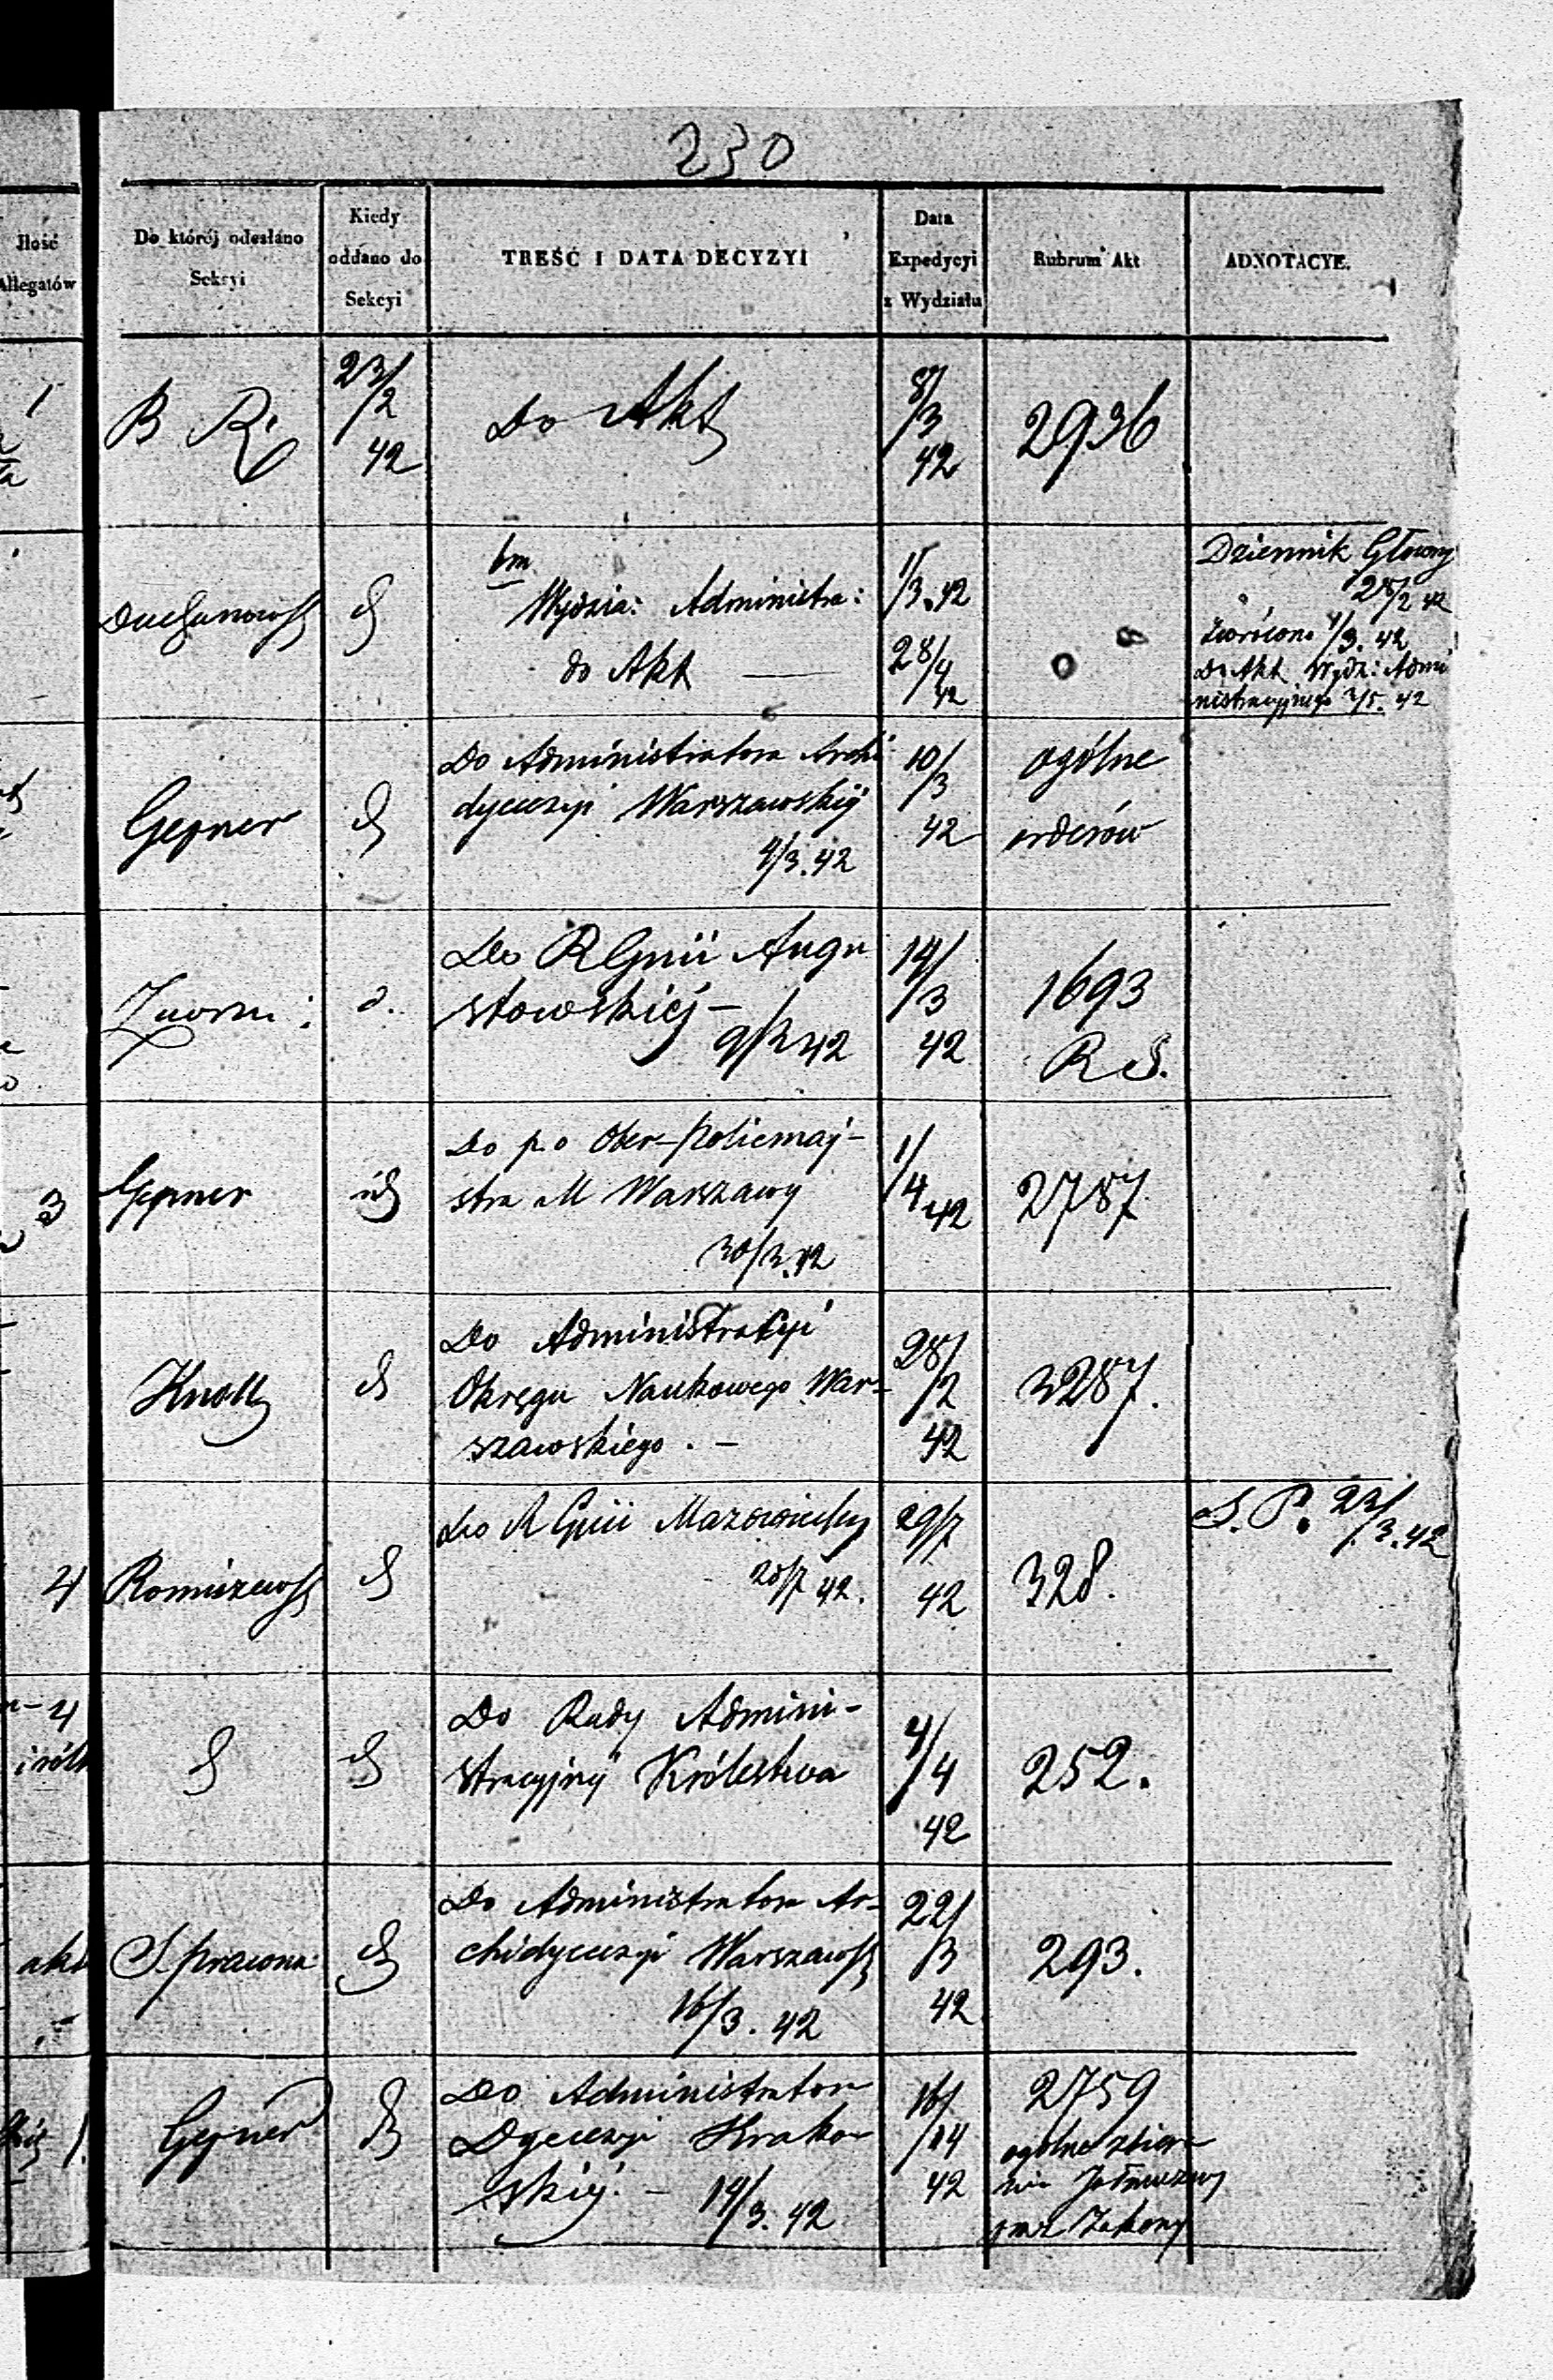 230
Ilość
Allegatów
Do którój odesłano
Sekcyi
Kiedy
oddano do
Sekcyi
TREŚĆ I DATA DECYZYI
Data
Expedycyi
z Wydziału
Rubrum Akt
ADNOTACYE.
1
B R.
23/2
42
Do Akt
8/3
42
2936
Wydzia: Administra:
do Akt
1/3.42
28/4
42
Dziennik Główny
28/2 42
Zwrócono 4/3. 42
Do Akt Wydz: Admi
nistracyjnego 2/5. 42
Gepner
d
Do Administratora Archi
dyecezyi Warszawskiéj
4/3.42
10/3
42
ogólne
orderów
d.
Do RGnii Augu
stowskiéj —
9/3 42
14/3
42
1693
R S.
3
Gepner
id
Do p.o Ober-Policmaj-
stra M Warszawy
30/3.42
1/4 42
2787
Knoll
d
Do Administracyi
Okręgu Naukowego War-
szawskiego. —
28/2
42
3287.
4
d
Do R Gnii Mazowieckiéj
20/7 42.
29/7
42
328.
S. P. 23/3.42
4
d
d
Do Rady Admini-
stracyjnéj Królestwa
4/4
42
252.
akt
d
Do Administratora Ar-
chidyecezyi Warszawsk
16/3. 42
22/3
42
293.
1.
Gepner
d
Do Administratora
Dyecezyi Krakow
skiéj. — 14/3. 42
16/
42
2759
ogólne